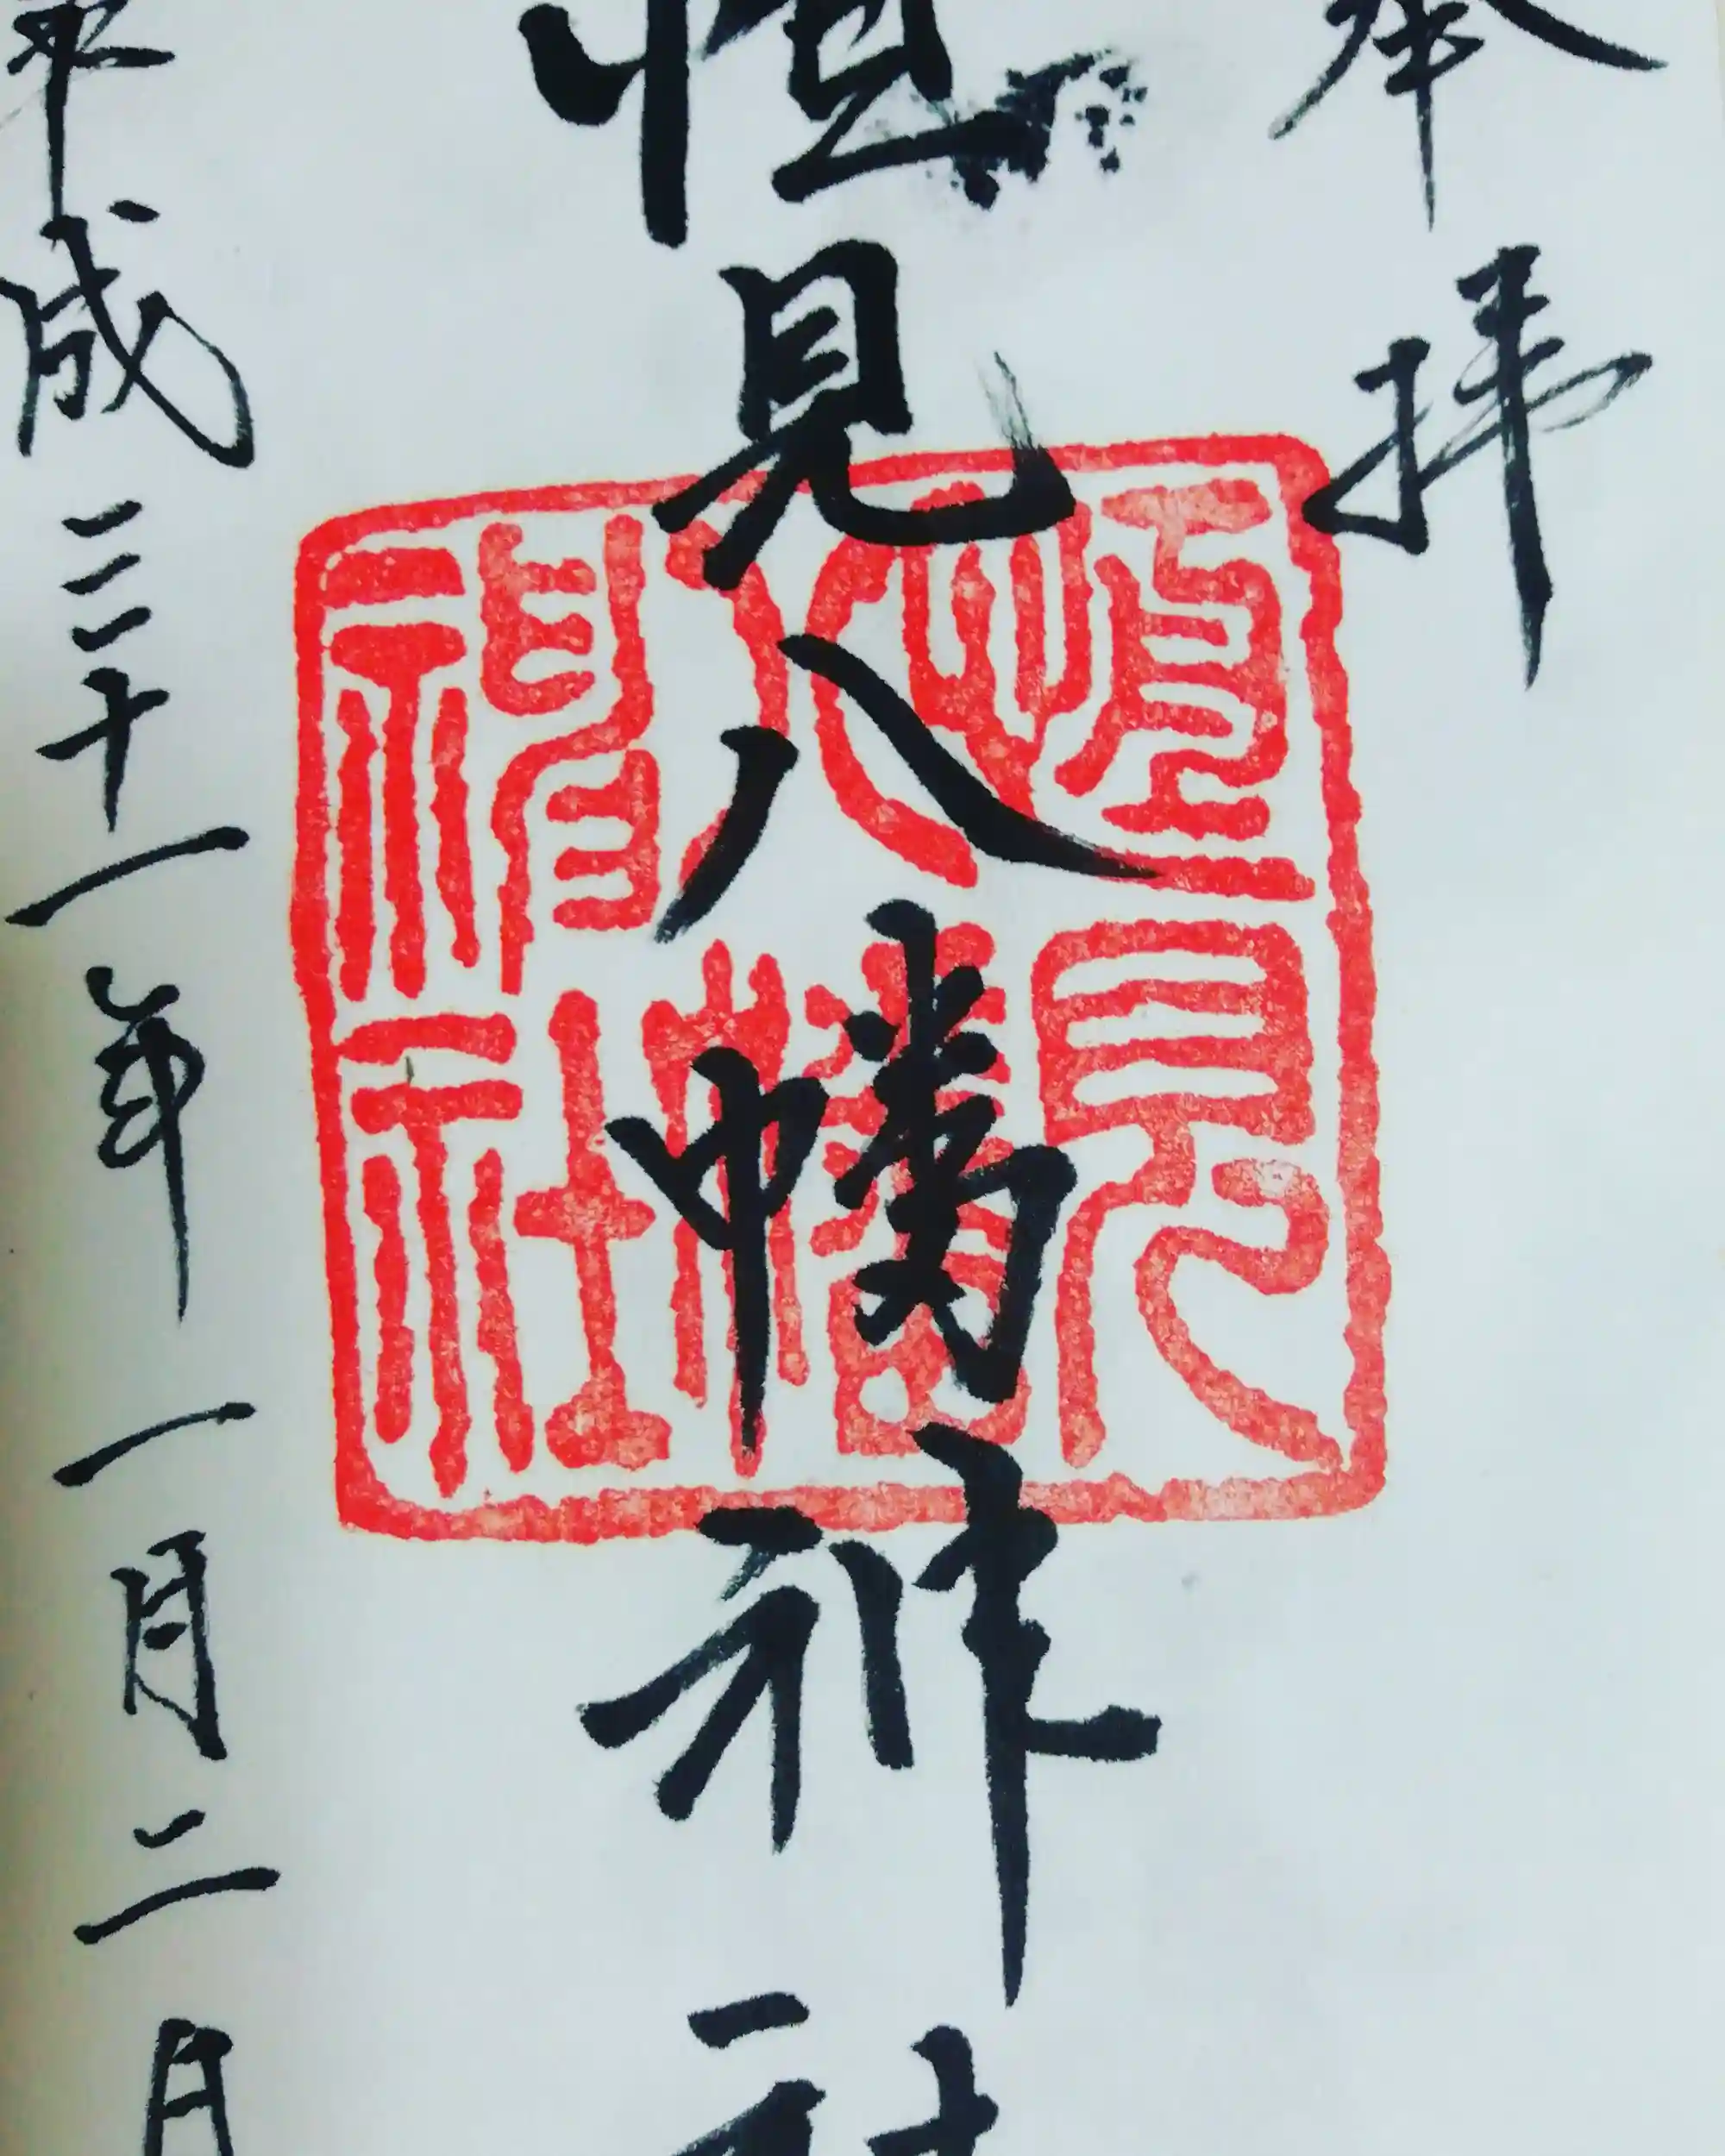 奉拝
恒見八幡神社
平成三十一年一月二日
恒見八幡神社